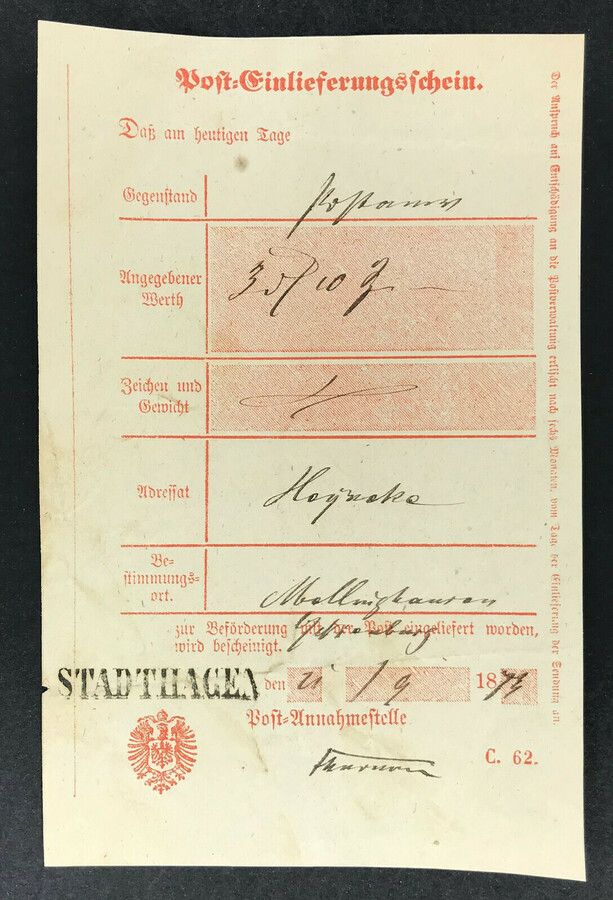 Post-Einlieferungsschein.
Daß am heutigen Tage
Gegenstand Postanw
Angegebener Werth 3 10
Zeichen und Gewicht
Adressat
Be-
stimmungs-
ort.
zur Beförderung mit der Post eingeliefert worden,
wird bescheinigt.
STADTHAGEN den 21 / 9 1873
Post-Annahmestelle
C. 62.
Der Anspruch auf Entschädigung an die Postverwaltung erlischt nach sechs Monaten, vom Tage der Einlieferung der Sendung an.